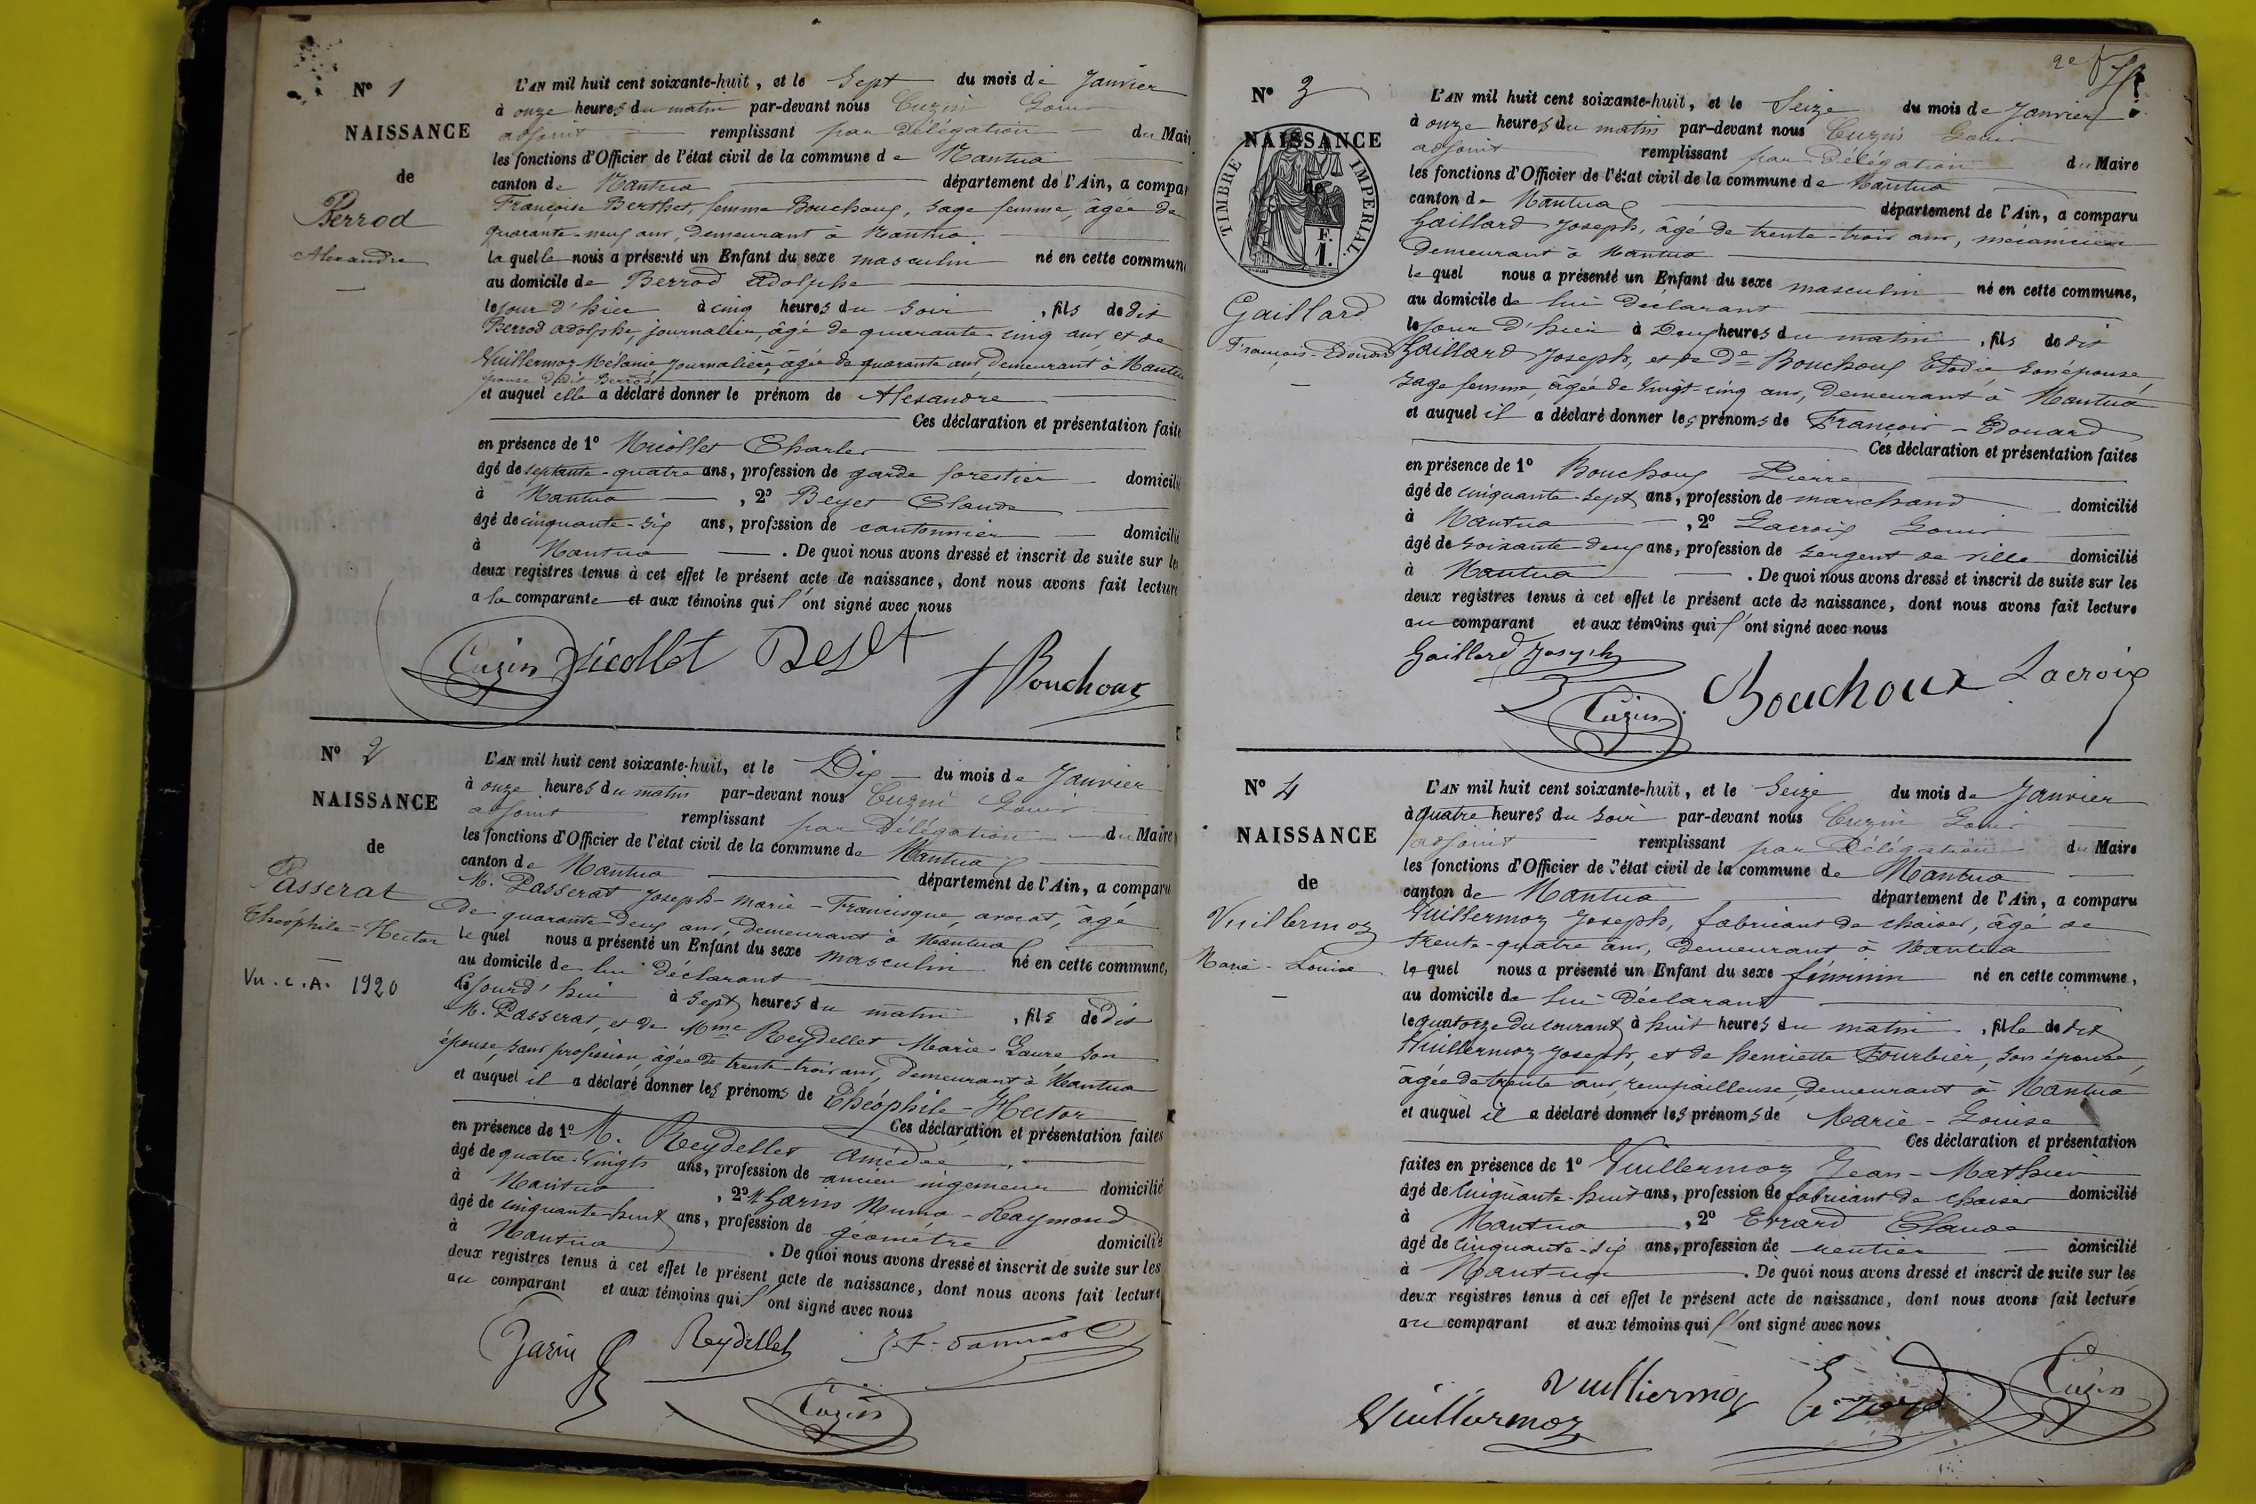 N° 1
NAISSANCE
de
Perrod
Alexandre
L'AN mil huit cent soixante-huit, et le Sept du mois de Janvier
à onze heures du matin par-devant nous Cuzin Louis
adjoint remplissant par Délégation du Mair
les fonctions d'Officier de l'état civil de la commune de Nantua
canton de Nantua département de l'Ain, a compar
Françoise Berthet, femme Bouchoux, sage femme, âgée de
quarante-neuf ans, demeurant à Nantua.
laquelle nous a présenté un Enfant du sexe masculin né en cette commune
au domicile de Berrod Adolphe
le jour d'hier à cinq heures du soir, fils de dit
Berrod adolphe, journalier, âgé de quarante-cinq ans, et de
Vuillermoz Mélanie, journalière, âgée de quarante ans, demeurant à Nantua
épouse dudit Berrod
et auquel elle a déclaré donner le prénom de Alexandre
Ces déclaration et présentation faite
en présence de 1° Nicollet Charles
âgé de septante-quatre ans, profession de garde forestier domicilié
à Nantua, 2° Beyet Claude
âgé de cinquante-six ans, profession de cantonnier domicilié
à Nantua. De quoi nous avons dressé et inscrit de suite sur les
deux registres tenus à cet effet le présent acte de naissance, dont nous avons fait lecture
a la comparante et aux témoins qui l'ont signé avec nous
Cuzin Nicollet f Bouchoux
N° 2
NAISSANCE
de
Passerat
Théophile-Hector
Vu. c. A. 1920
L'AN mil huit cent soixante-huit, et le Dix du mois de Janvier
à onze heures du matin par-devant nous Cuzin Louis
adjoint remplissant par Délégation du Maire
les fonctions d'Officier de l'état civil de la commune de Nantua
canton de Nantua département de l'Ain, a comparu
M. Passerat Joseph-Marie-Francisque, avocat, âgé
de quarante-deux ans, demeurant à Nantua
lequel nous a présenté un Enfant du sexe masculin né en cette commune,
au domicile de lui déclarant
cejourd'hui à sept heures du matin, fils de dit
M. Passerat, et de Mme Reydellet Marie-Laure, son
épouse, sans profession, âgée de trente trois ans, demeurant à Nantua
et auquel il a déclaré donner les prénoms de Théophile-Hector
Ces déclaration et présentation faites
en présence de 1° M. Reydellet Amédée
âgé de quatre-vingts ans, profession de ancien ingénieur domicilié
à Nantua, 2° M. Numa-Raymond
âgé de cinquante-huit ans, profession de géomètre domicilié
à Nantua. De quoi nous avons dressé et inscrit de suite sur les
deux registres tenus à cet effet le présent acte de naissance, dont nous avons fait lecture
au comparant et aux témoins qui l'ont signé avec nous
Reydellet
Cuzin
2e f
N° 3
NAISSANCE
de
TIMBRE IMPERIAL
F.
1.
Gaillard
François-Edouard
L'AN mil huit cent soixante-huit, et le Seize du mois de Janvier
à onze heures du matin par-devant nous Cuzin Louis
adjoint remplissant par Délégation du Maire
les fonctions d'Officier de l'état civil de la commune de Nantua
canton de Nantua département de l'Ain, a comparu
Gaillard Joseph, âgé de trente-trois ans, mécanicien
demeurant à Nantua
lequel nous a présenté un Enfant du sexe masculin né en cette commune,
au domicile de lui déclarant
le jour d'hier à Deux heures du matin, fils de dit
Gaillard Joseph, et de De Bouchoux Elodie son épouse,
sage femme, âgée de vingt-cinq ans, demeurant à Nantua
et auquel il a déclaré donner les prénoms de François-Edouard
Ces déclaration et présentation faites
en présence de 1° Bouchoux Pierre
âgé de cinquante-sept ans, profession de marchand domicilié
à Nantua, 2° Lacroix Louis
âgé de soixante-deux ans, profession de sergent de ville domicilié
à Nantua. De quoi nous avons dressé et inscrit de suite sur les
deux registres tenus à cet effet le présent acte de naissance, dont nous avons fait lecture
au comparant et aux témoins qui l'ont signé avec nous
Gaillard Joseph Bouchoux Lacroix
Cuzin
N° 4
NAISSANCE
de
Vuillermoz
Marie-Louise
L'AN mil huit cent soixante-huit, et le Seize du mois de Janvier
à quatre heures du soir par-devant nous Cuzin Louis
adjoint remplissant par Délégation du Maire
les fonctions d'Officier de l'état civil de la commune de Nantua
canton de Nantua département de l'Ain, a comparu
Vuillermoz Joseph, fabricant de chaises, âgé de
trente-quatre ans, demeurant à Nantua
lequel nous a présenté un Enfant du sexe féminin né en cette commune,
au domicile de lui déclarant
le quatorze du courant à huit heures du matin, fille de dit
Vuillermoz Joseph, et de henriette Fourbier, son épouse,
âgée de trente ans, rempailleuse, demeurant à Nantua
et auquel il a déclaré donner les prénoms de Marie-Louise
Ces déclaration et présentation
faites en présence de 1° Vuillermoz Jean-Mathieu
âgé de cinquante-huit ans, profession de fabricant de chaises domicilié
à Nantua, 2° Errard Claude
âgé de cinquante-six ans, profession de rentier domicilié
à Nantua. De quoi nous avons dressé et inscrit de suite sur les
deux registres tenus à cet effet le présent acte de naissance, dont nous avons fait lecture
au comparant et aux témoins qui l'ont signé avec nous
Vuilliermoz Cuzin
Vuillermoz